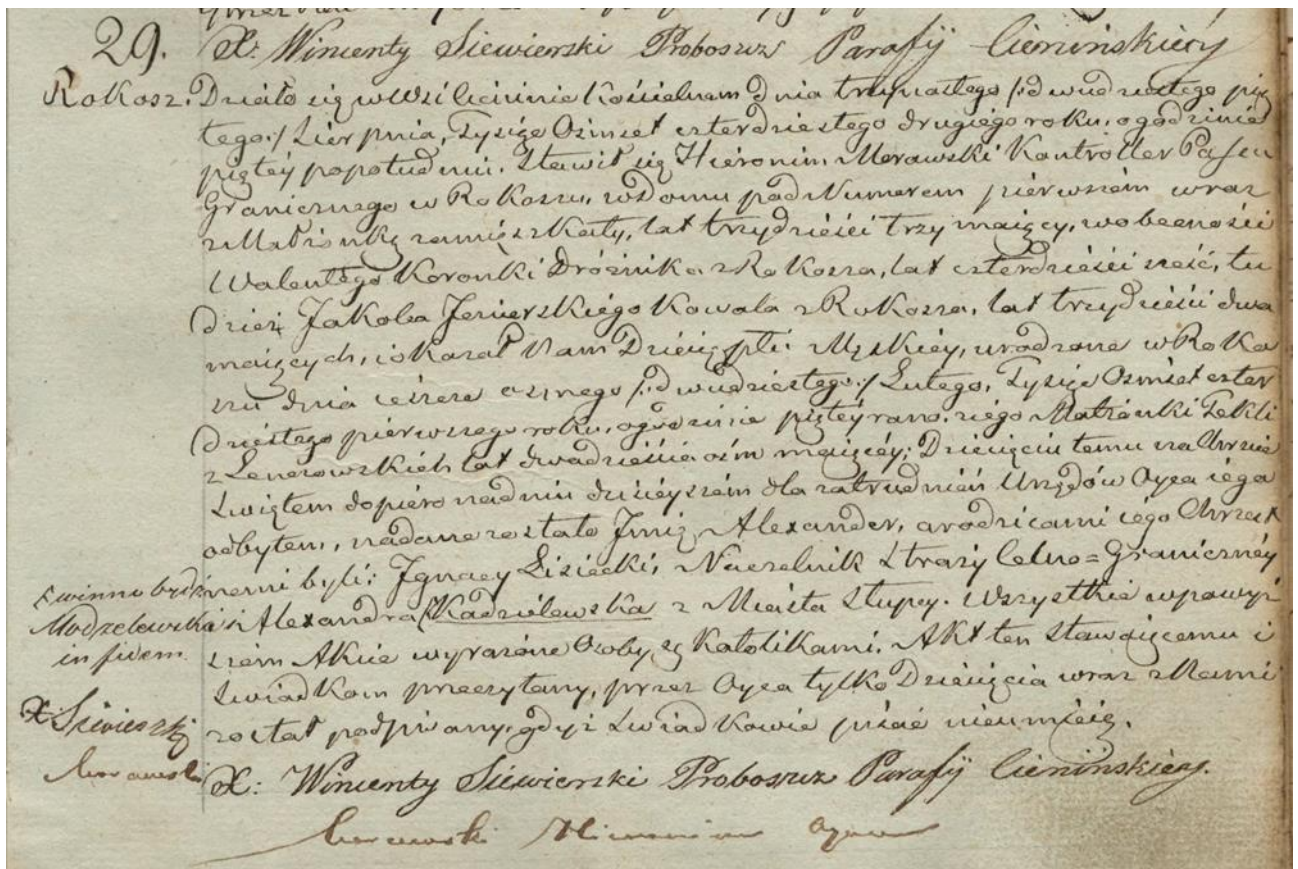 29.
X: Wincenty Siewierski Proboszcz Parafij Cienińskiéy
Rokosz. Działo się w Wsi Cieninie Kościelnem dnia trzynastego /: dwudziestego pią
tego:/ Sierpnia, Tysiąc Ośmset czterdziestego drugiego roku, o godzinie
piątéy popołudniu. Stawił się Hieronim Morawski Kontroller Pasu
Granicznego w Rokoszu, w domu pod Numerem piérwszém wraz
z Małżonką zamięszkały, lat trzydzieści trzy maiący, w obecności
Walentego Koronki Dróżnika z Rokosza, lat czterdzieści sześć, tu
dzież Jakóba Jezierskiégo Kowala z Rokosza, lat trzydzieści dwa
maiących, i okazał Nam Dziécię płci Męzkiéy, urodzone w Roko
szu dnia ósmego /: dwudziestego:/ Lutego, Tysiąc Ośmset czter
dziestego pierwszego roku, o godzinie piątéy rano, z iégo Małżonki Tekli
z Lenczowskich lat dwadzieścia ośm maiącéy; Dziécięciu temu na Chrzcie
Świętem dopiéro na dniu dzisiéyszém dla zatrudnień Urzędów Oyca iégo
odbytem, nadane zostało Imię Alexander, a rodzicami iégo Chrzest
nemi byli: Ignacy Lisiecki, Naczelnik Straży Celno=Granicznéy
i Alexandra Kadzidewska z Miasta Słupcy. Wszystkie w powyż
szém Akcie wyrażone Osoby są Katolikami. Akt ten Stawaiącemu i
Świadkom przeczytany, przez Oyca tylko Dziécięcia wraz z Nami
został podpisany, gdyż Świadkowie pisać nieumieią.
X: Wincenty Siewierski Proboszcz Parafij Cienińskiéy.
Morawski Hieronim Oyciec
winno bydź
Modzelewska
in fidem
X Siewierski
Morawski